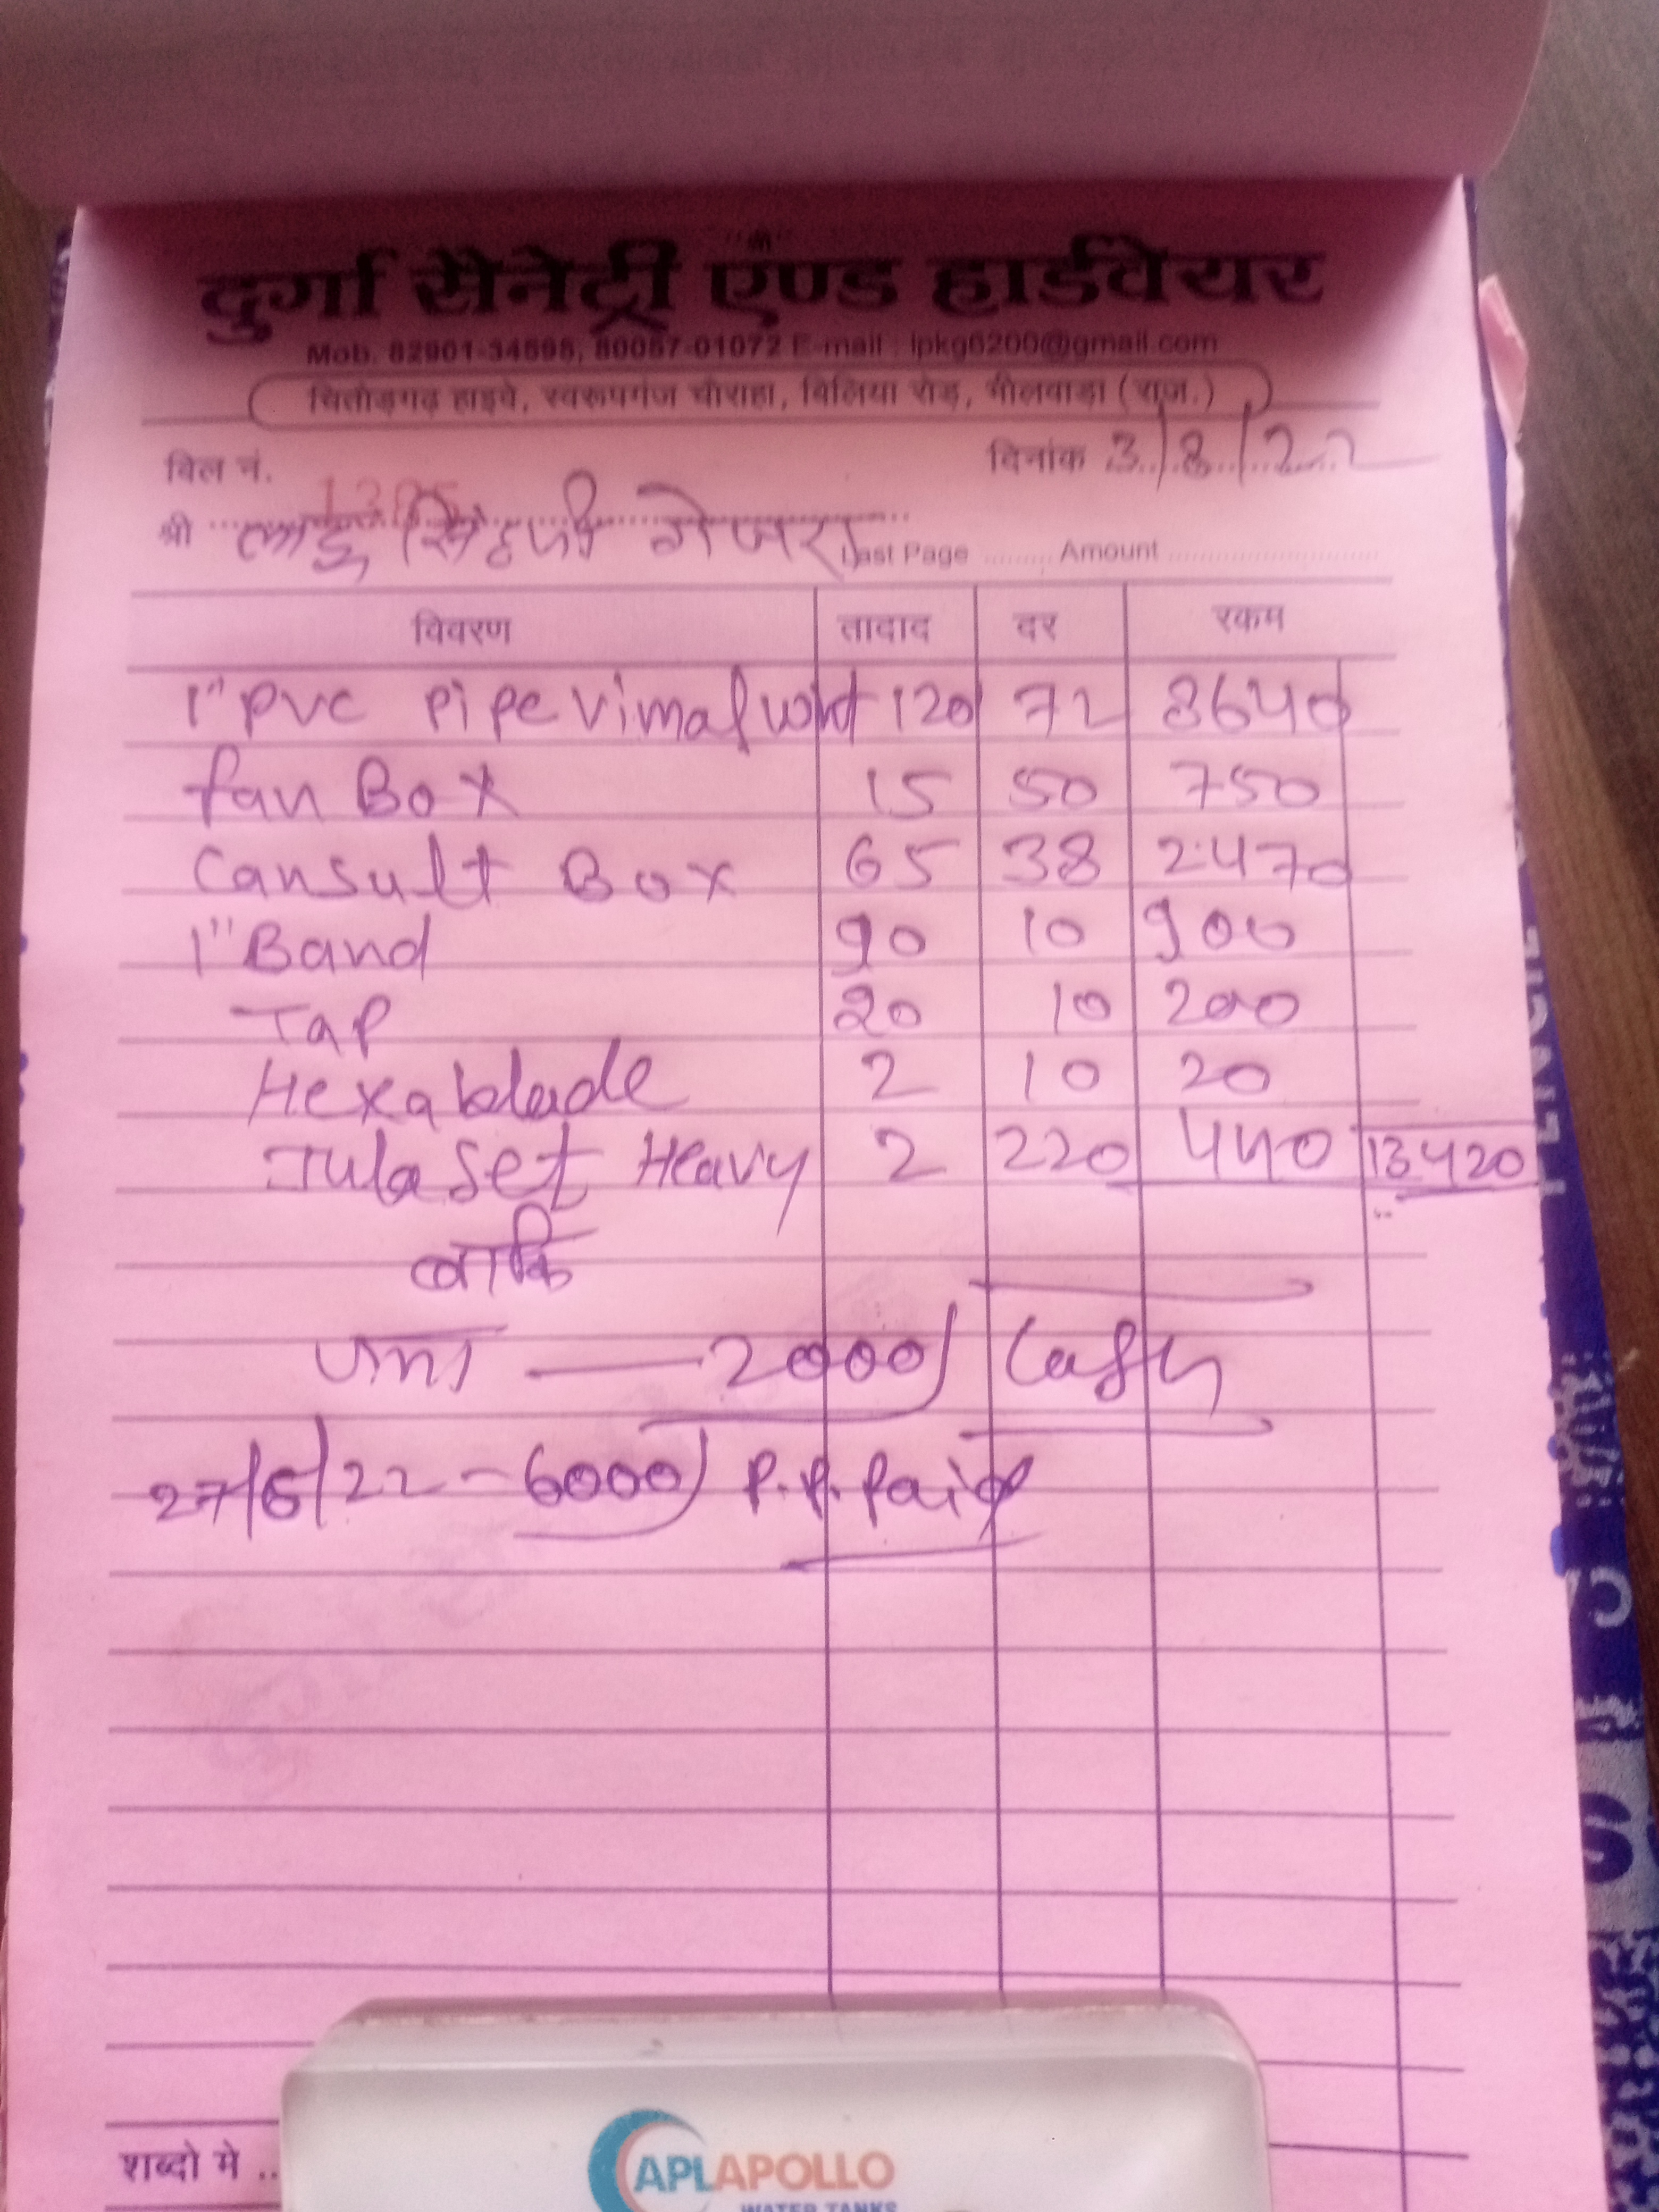 "श्री"
दुर्गा सैनेट्री एण्ड हार्डवेयर
Mob. 82901-34595, 80057-01072 E-mail : lpkg6200@gmail.com
चितोड़गढ़ हाइवे, स्वरूपगंज चौराहा, बिलिया रोड़, भीलवाड़ा (राज.)
बिल नं. दिनांक 3/8/22
श्री लादू सिंह जी Last Page ........ Amount ........
विवरण तादाद दर रकम
1" PVC Pipe Vimal 120 72 8640
fan Box 15 50 750
Cansult Box 65 38 2470
1" Band 90 10 900
Tap 20 10 200
Hexablade 2 10 20
Jula Set Heavy 2 220 440 13420
बाकि
जमा — 2000/ Cash
27/6/22 - 6000/ P.P. Paid
शब्दो मे ..
APLAPOLLO
WATER TANKS